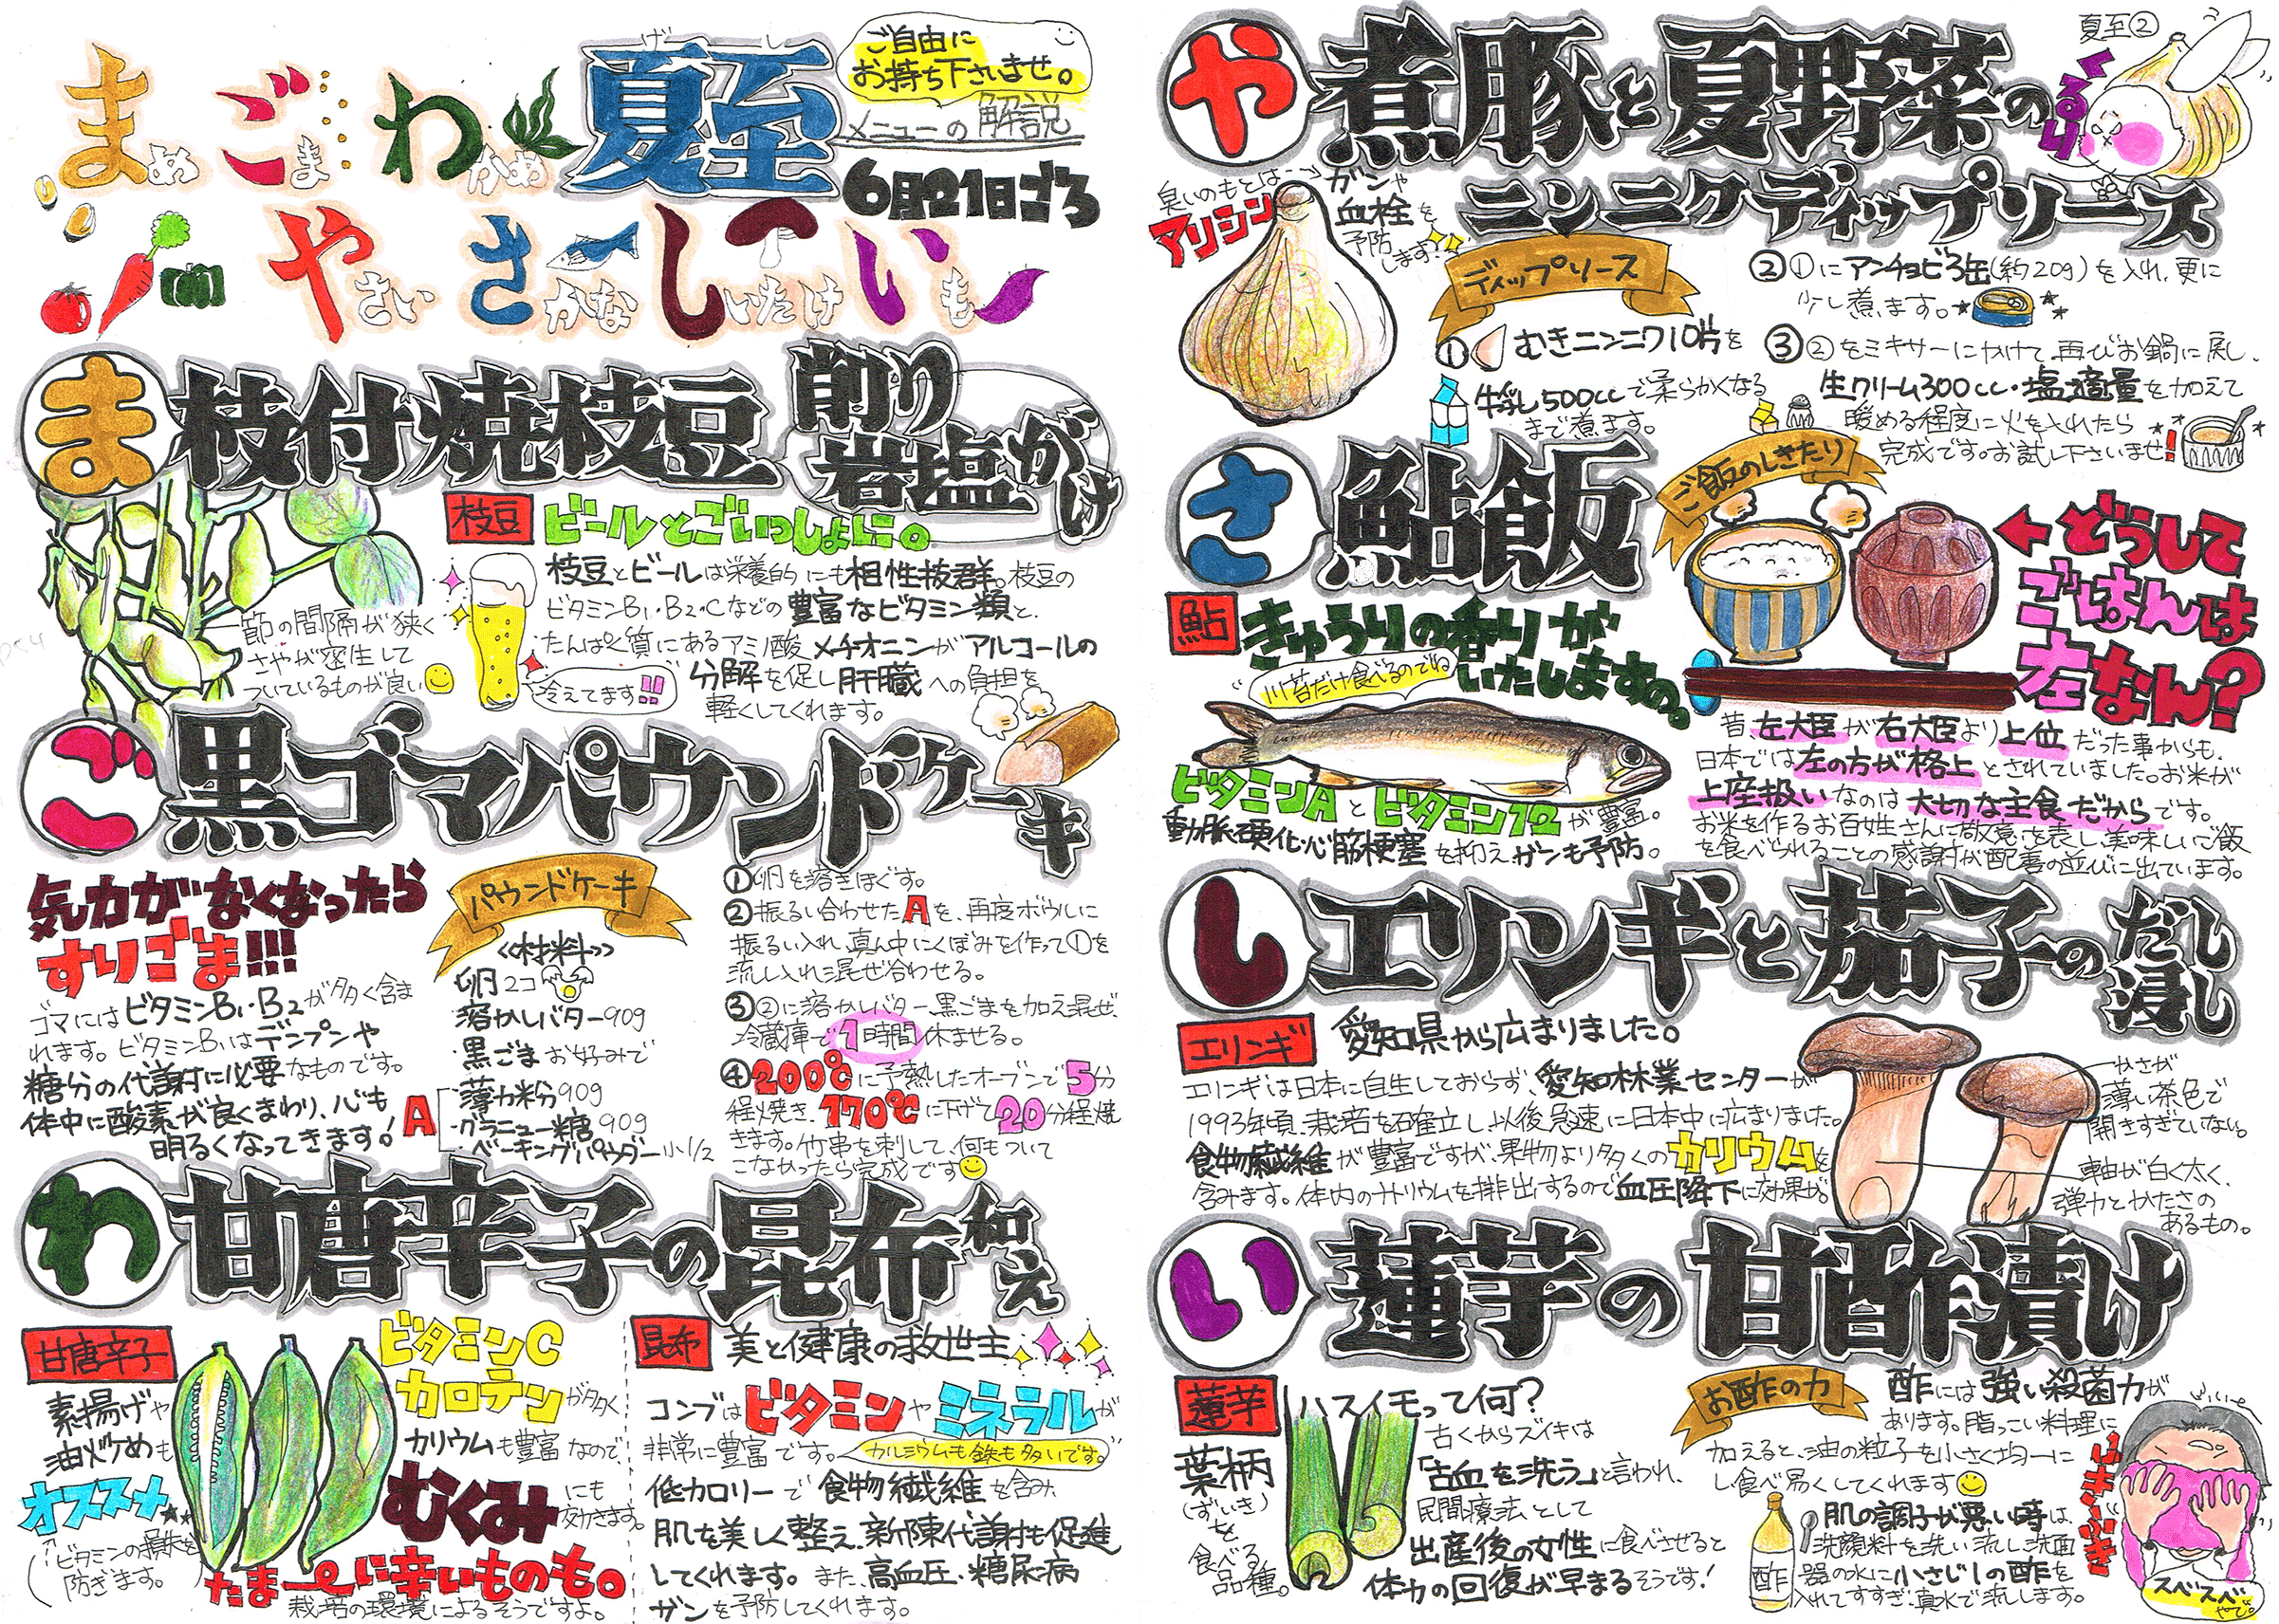 まめ ごま わかめ
夏至
げし
ご自由に
お持ち下さいませ。
メニューの解説
6月21日ごろ
やさい さかな しいたけ いも
ま
枝付焼枝豆
削り
岩塩がけ
枝豆
ビールとごいっしょに。
節の間隔が狭く
さやが密生して
ついているものが良い
枝豆とビールは栄養的にも相性抜群。枝豆の
ビタミンB₁・B₂・Cなどの豊富なビタミン類と、
たんぱく質にあるアミノ酸メチオニンがアルコールの
分解を促し肝臓への負担を
軽くしてくれます。
冷えてます!!
ご
黒ゴマパウンドケーキ
気力がなくなったら
すりごま!!!
ゴマにはビタミンB₁・B₂が多く含ま
れます。ビタミンB₁はデンプンや
糖分の代謝に必要なものです。
体中に酸素が良くまわり、心も
明るくなってきます!
パウンドケーキ
<<材料>>
卵2コ
・溶かしバター90g
・黒ごまお好みで
A
・薄力粉90g
・グラニュー糖90g
・ベーキングパウダー小1/2
①卵を溶きほぐす。
②振るい合わせたAを、再度ボウルに
振るい入れ、真ん中にくぼみを作って①を
流し入れ混ぜ合わせる。
③②に溶かしバター、黒ごまを加え混ぜ、
冷蔵庫で1時間休ませる。
④200℃に予熱したオーブンで5分
程焼き、170℃に下げて20分程焼
きます。竹串を刺して、何もついて
こなかったら完成です
わ
甘唐辛子の昆布和え
甘唐辛子
素揚げや
油炒めも
オススメ
ビタミンの損失を
防ぎます。
ビタミンC
カロテンが多く
カリウムも豊富なので、
むくみにも
効きます。
たま〜に辛いものも。
栽培の環境によるそうですよ。
昆布
美と健康の救世主
コンブはビタミンやミネラルが
非常に豊富です。
カルシウムも鉄も多いです。
低カロリーで食物繊維を含み
肌を美しく整え、新陳代謝も促進
してくれます。また、高血圧・糖尿病
ガンを予防してくれます。
夏至②
や
煮豚と夏野菜の
ニンニクディップソース
くるり
臭いのもとは…
アリシン
ガンや
血栓を
予防
します!
ディップソース
①むきニンニク10片を
牛乳500ccで柔らかくなる
まで煮ます。
②①にアンチョビ3缶(約20g)を入れ、更に
少し煮ます。
③②をミキサーにかけて再びお鍋に戻し、
生クリーム300cc・塩適量を加えて
暖める程度に火を入れたら
完成です。お試し下さいませ!
さ
鮎飯
ご飯のしきたり
鮎
きゅうりの香りが
いたしますの。
川苔だけ食べるのでね
ビタミンAとビタミン12が豊富。
動脈硬化・心筋梗塞を抑えガンも予防。
どうして
ごはんは
左なん?
昔左大臣が右大臣より上位だった事からも、
日本では左の方が格上とされていました。お米が
上座扱いなのは大切な主食だからです。
お米を作るお百姓さんに敬意を表し、美味しいご飯
を食べられることの感謝が配善の並びに出ています。
し
エリンギと茄子のだし浸し
エリンギ
愛知県から広まりました。
エリンギは日本に自生しておらず、愛知林業センターが
1993年頃、栽培を確立し、以後急速に日本中に広まりました。
食物繊維が豊富ですが、果物より多くのカリウムを
含みます。体内のナトリウムを排出するので血圧降下に効果が。
かさが
薄い茶色で
開きすぎていない。
軸が白く太く、
弾力とかたさの
あるもの。
い
蓮芋の甘酢漬け
蓮芋
ハスイモって何?
葉柄
(ずいき)
を
食べる
品種。
古くからズイキは
「古血を洗う」と言われ、
民間療法として
出産後の女性に食べさせると
体力の回復が早まるそうです!
お酢の力
酢には強い殺菌力が
あります。脂っこい料理に
加えると、油の粒子を小さく均一に
し食べ易くしてくれます
酢
肌の調子が悪い時は、
洗顔料を洗い流し洗面
器の水に小さじ1の酢を
入れてすすぎ、真水で流します。
スベスベ
やで。